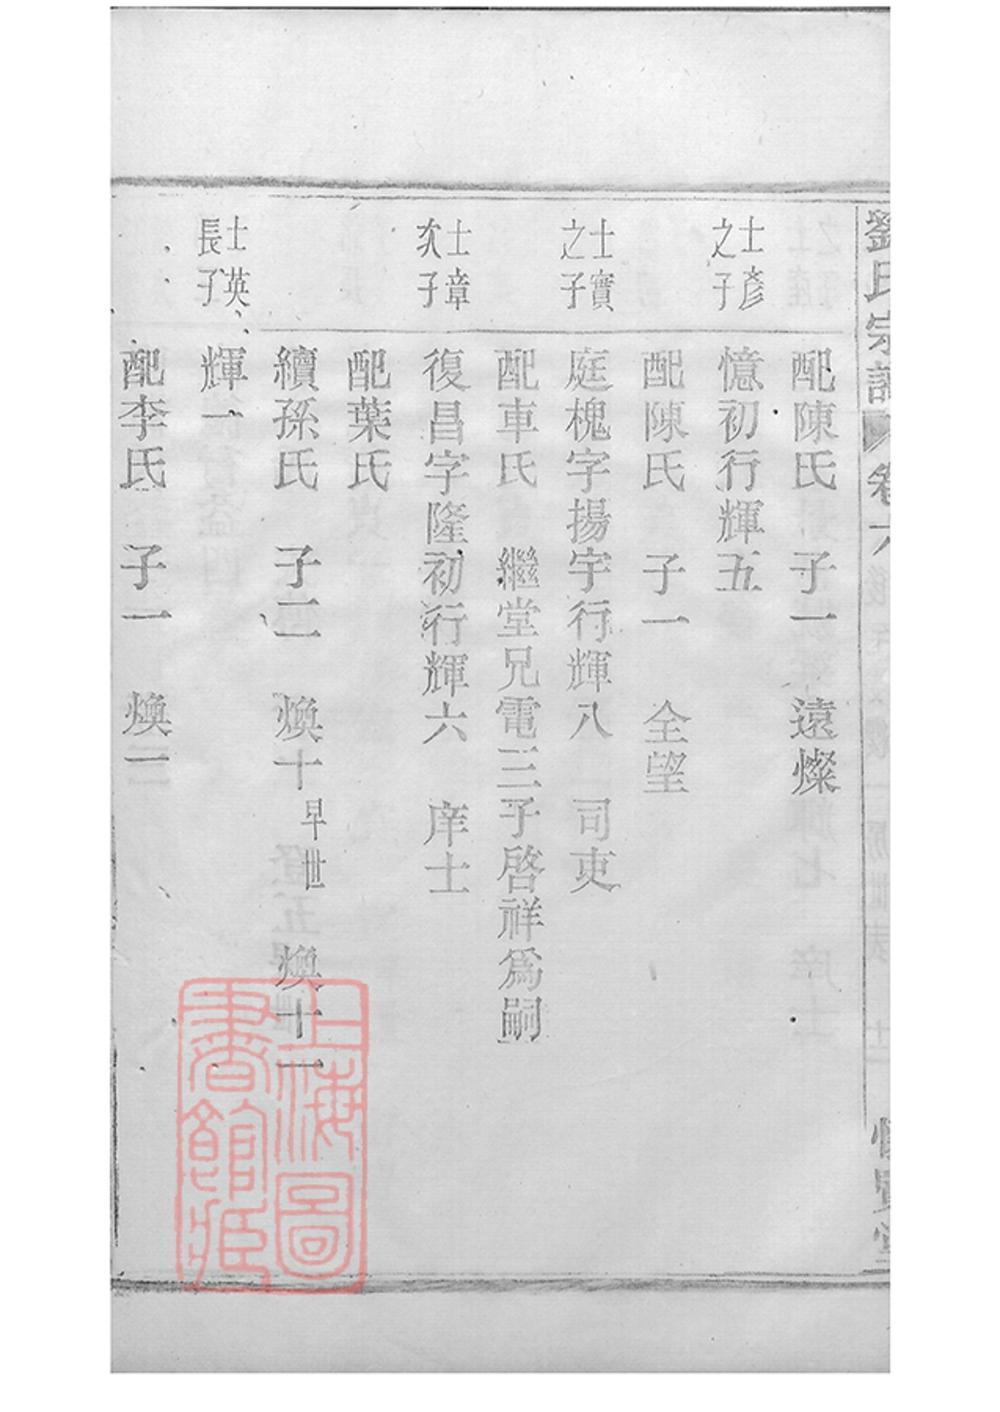 劉氏宗譜 卷
配陳氏 子一 遠燦
士彥之子
憶初行輝五
配陳氏 子一 全望
士實之子
庭槐字揚宇行輝八 司吏
配車氏 繼堂兄電三子啓祥爲嗣
士章次子
復昌字隆初行輝六 庠士
配葉氏
續孫氏 子二 煥十早世 煥十一
士英長子
輝一
配李氏 子一 煥二
上海圖書館藏